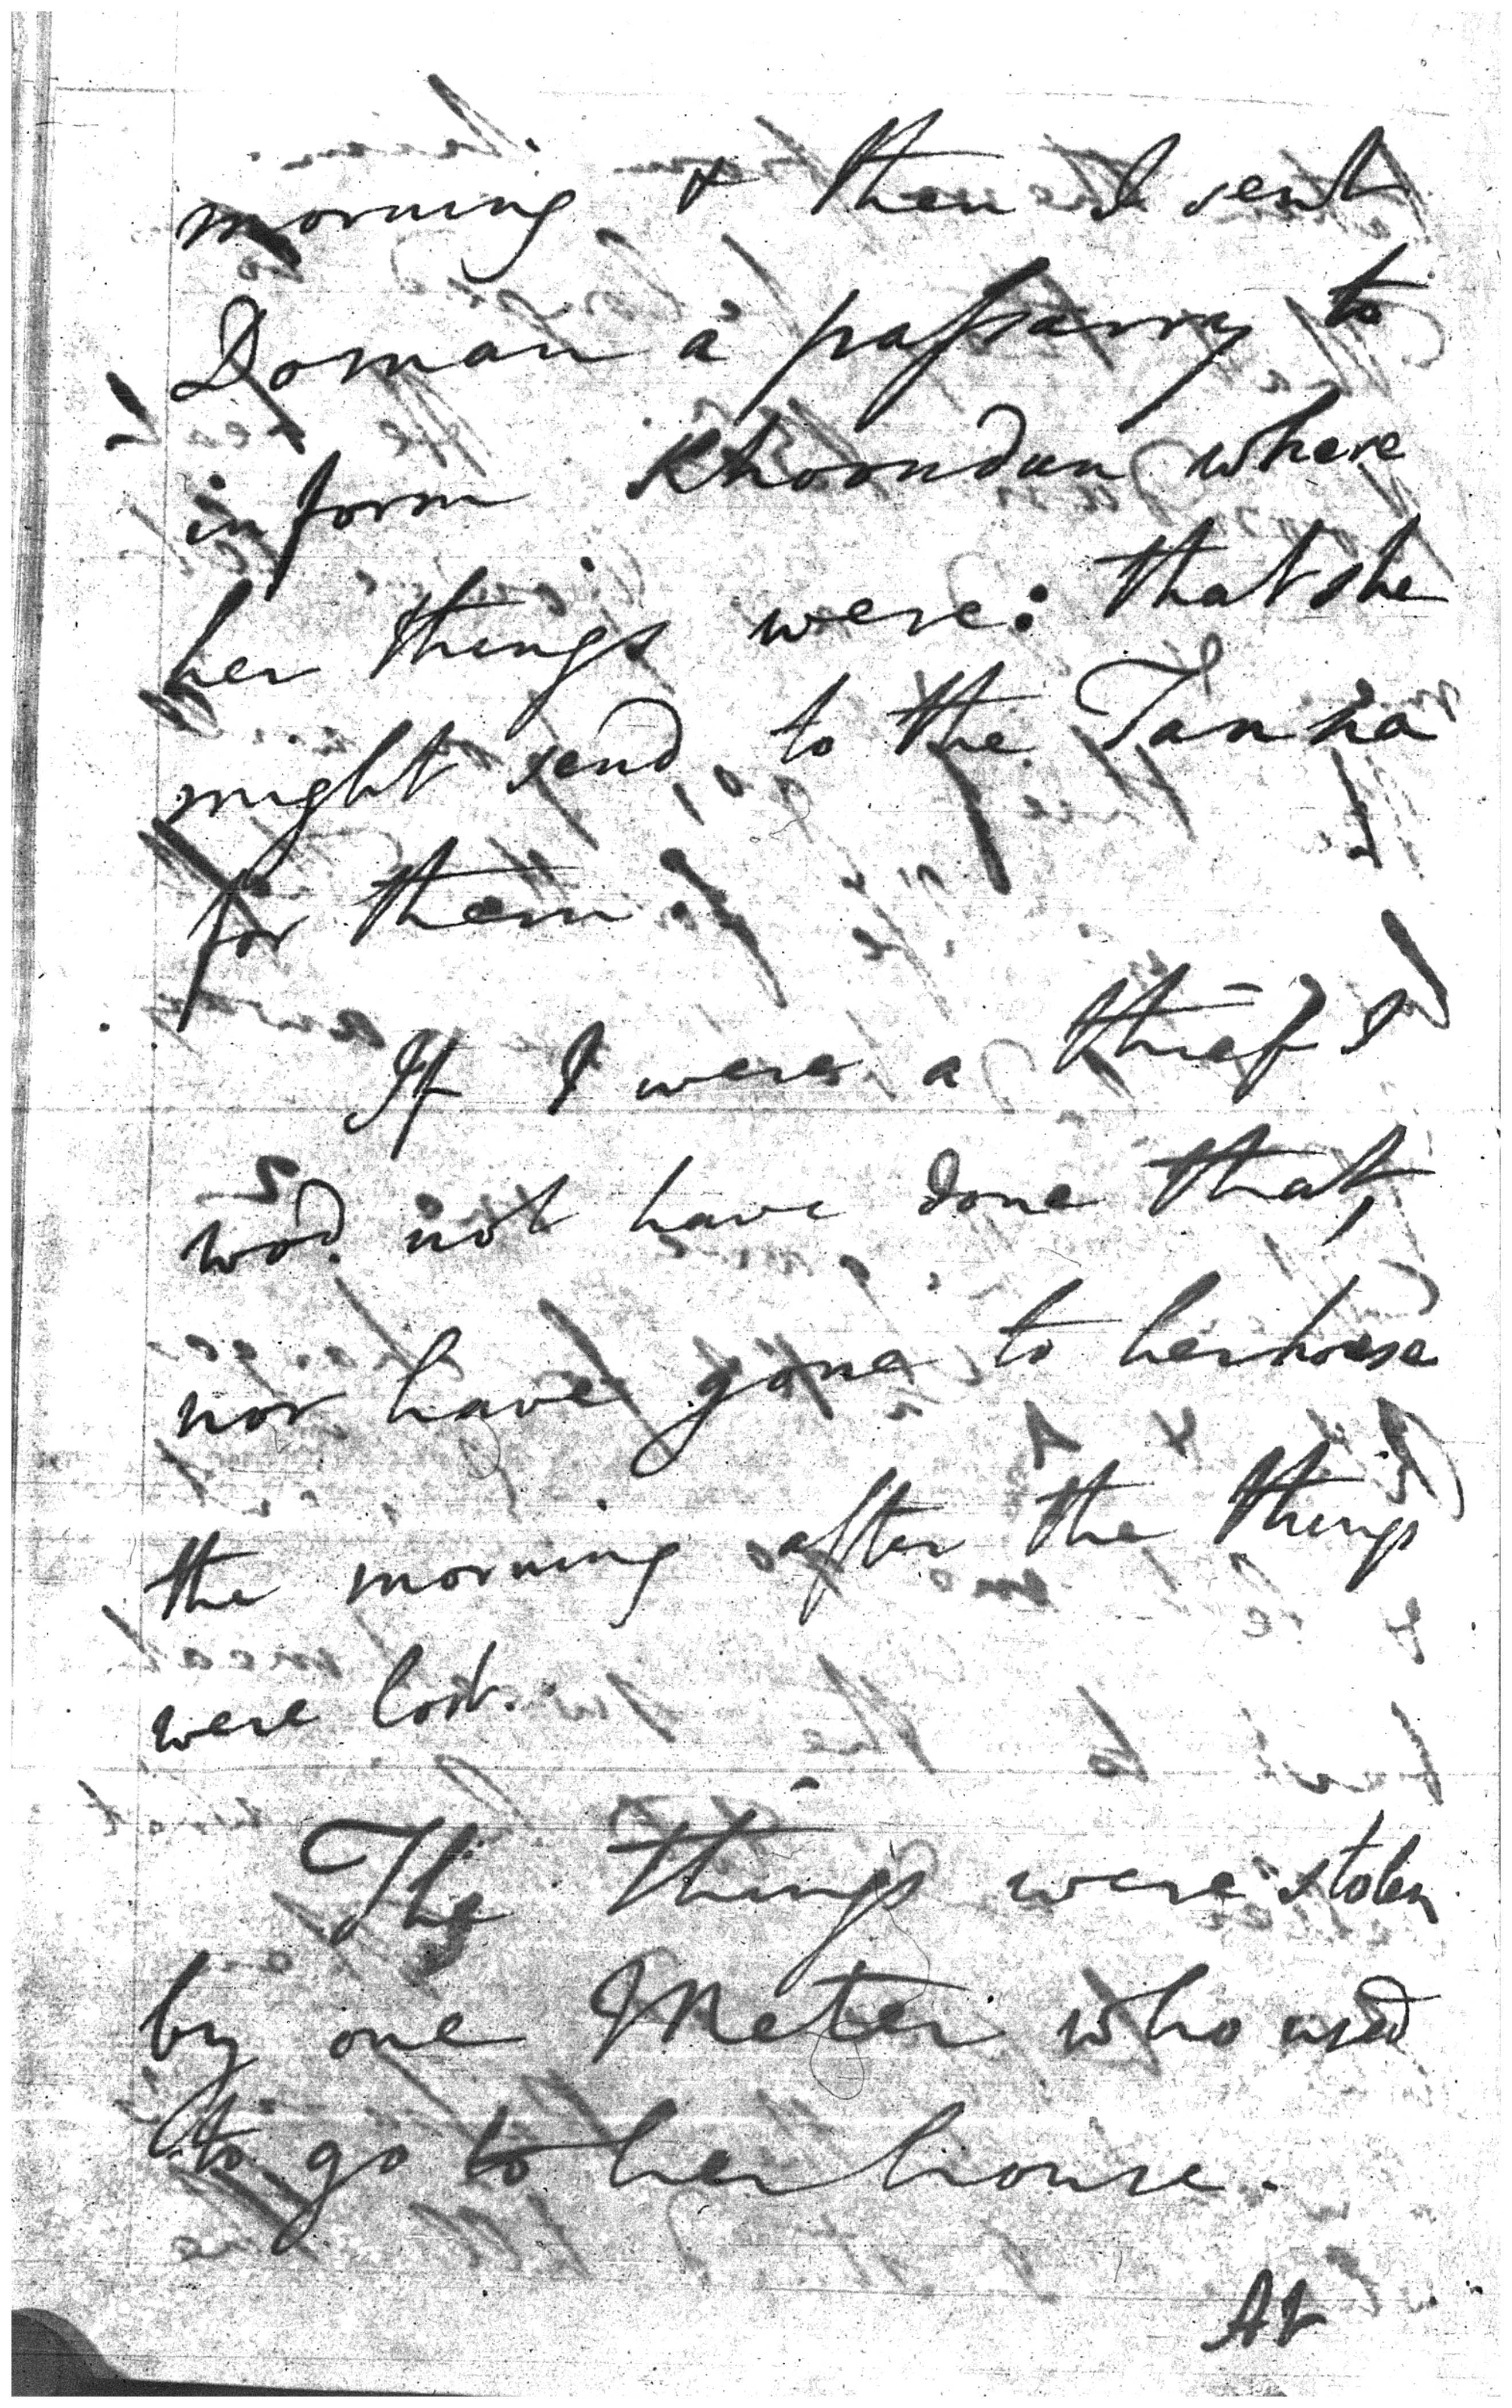 morning & then I sent
Doman a passarry to
inform Khoondun where
her things were: that she
might send to the Tanna
for them.
If I were a thief I
wod. not have done that,
nor have gone to her house
the morning after the things
were lost.
The things were stolen
by one Meter who used
to go to her house.
At